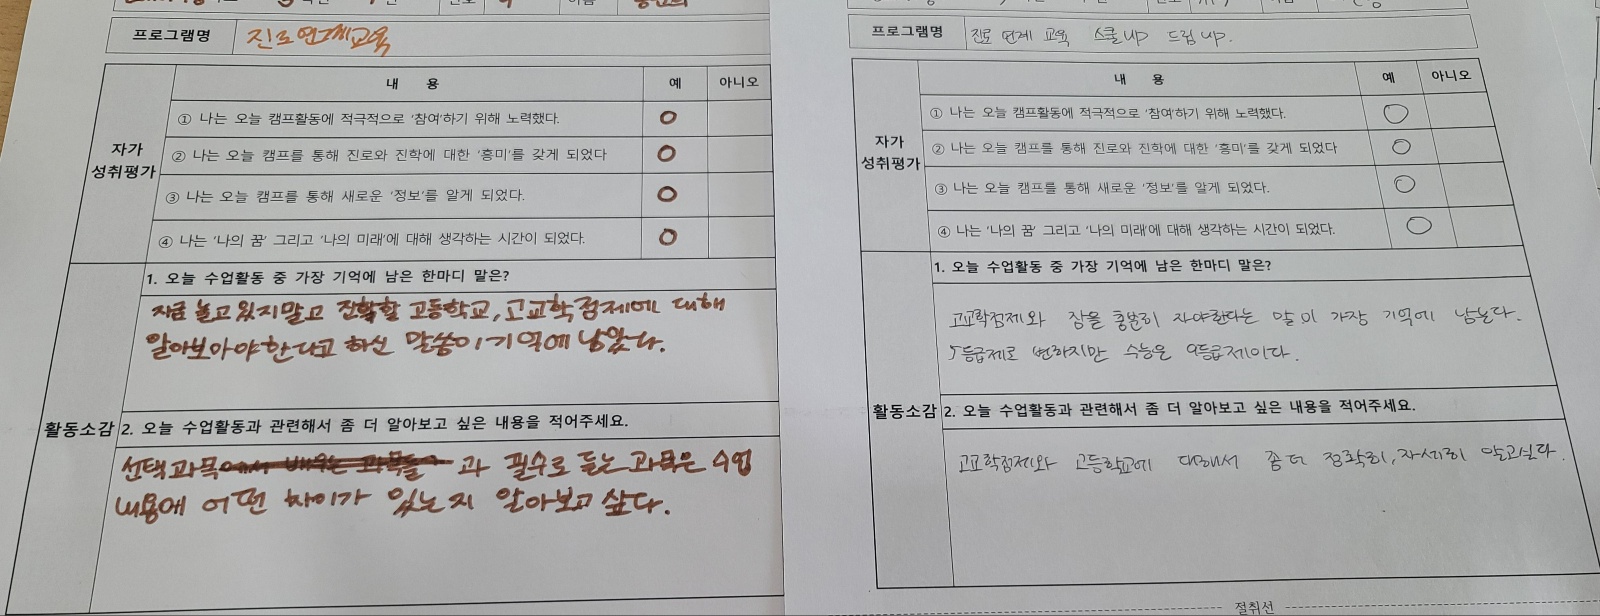 프로그램명 진로연계교육
내 용 예 아니오
자가
성취평가
① 나는 오늘 캠프활동에 적극적으로 '참여'하기 위해 노력했다. O
② 나는 오늘 캠프를 통해 진로와 진학에 대한 '흥미'를 갖게 되었다 O
③ 나는 오늘 캠프를 통해 새로운 '정보'를 알게 되었다. O
④ 나는 '나의 꿈' 그리고 '나의 미래'에 대해 생각하는 시간이 되었다. O
활동소감
1. 오늘 수업활동 중 가장 기억에 남은 한마디 말은?
지금 놀고 있지말고 진학할 고등학교, 고교학점제에 대해
알아보아야 한다고 하신 말씀이 기억에 남았다.
2. 오늘 수업활동과 관련해서 좀 더 알아보고 싶은 내용을 적어주세요.
선택과목 과 필수로 듣는 과목은 수업
내용에 어떤 차이가 있는지 알아보고 싶다.
프로그램명 진로 연계 교육 스쿨up 드림 up.
내 용 예 아니오
자가
성취평가
① 나는 오늘 캠프활동에 적극적으로 '참여'하기 위해 노력했다. O
② 나는 오늘 캠프를 통해 진로와 진학에 대한 '흥미'를 갖게 되었다 O
③ 나는 오늘 캠프를 통해 새로운 '정보'를 알게 되었다. O
④ 나는 '나의 꿈' 그리고 '나의 미래'에 대해 생각하는 시간이 되었다. O
활동소감
1. 오늘 수업활동 중 가장 기억에 남은 한마디 말은?
고교학점제와 잠을 충분히 자야한다는 말이 가장 기억에 남는다.
5등급제로 변하지만 수능은 9등급제이다.
2. 오늘 수업활동과 관련해서 좀 더 알아보고 싶은 내용을 적어주세요.
고교학점제와 고등학교에 대해서 좀 더 정확히, 자세히 알고싶다.
절취선